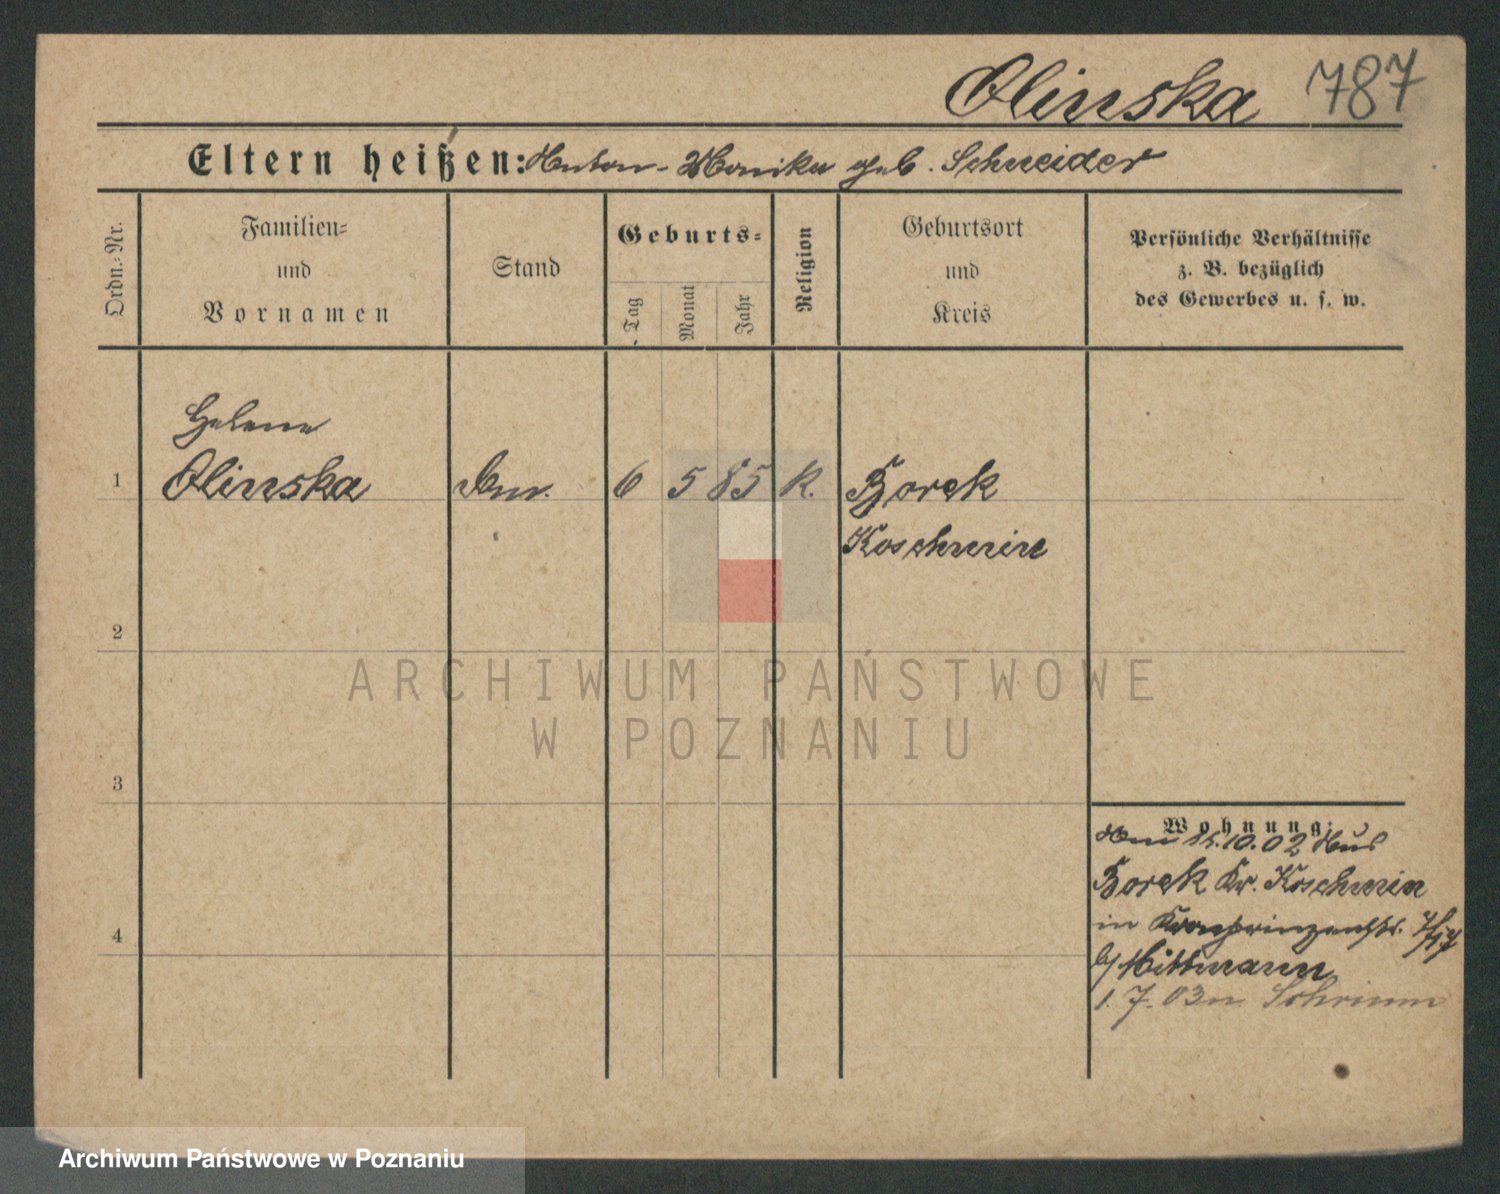 Olinska 787
Eltern heißen: Anton - Monika geb. Schneider
Ordn.-Nr.
Familien-
und
Vornamen
Stand
Geburts-
Tag
Monat
Jahr
Religion
Geburtsort
und
Kreis
Persönliche Verhältnisse
z. B. bezüglich
des Gewerbes u. s. w.
Helene
1 Olinska 6 5 85 K. Borek
Koschmin
2
ARCHIWUM PAŃSTWOWE
W POZNANIU
3
Wohnung:
10. 02 Aus
Borek Kr. Koschmin
in Kronprinzenstr.
4
b/ Mittmann
1. 7. 03 n. Schrimm
Archiwum Państwowe w Poznaniu